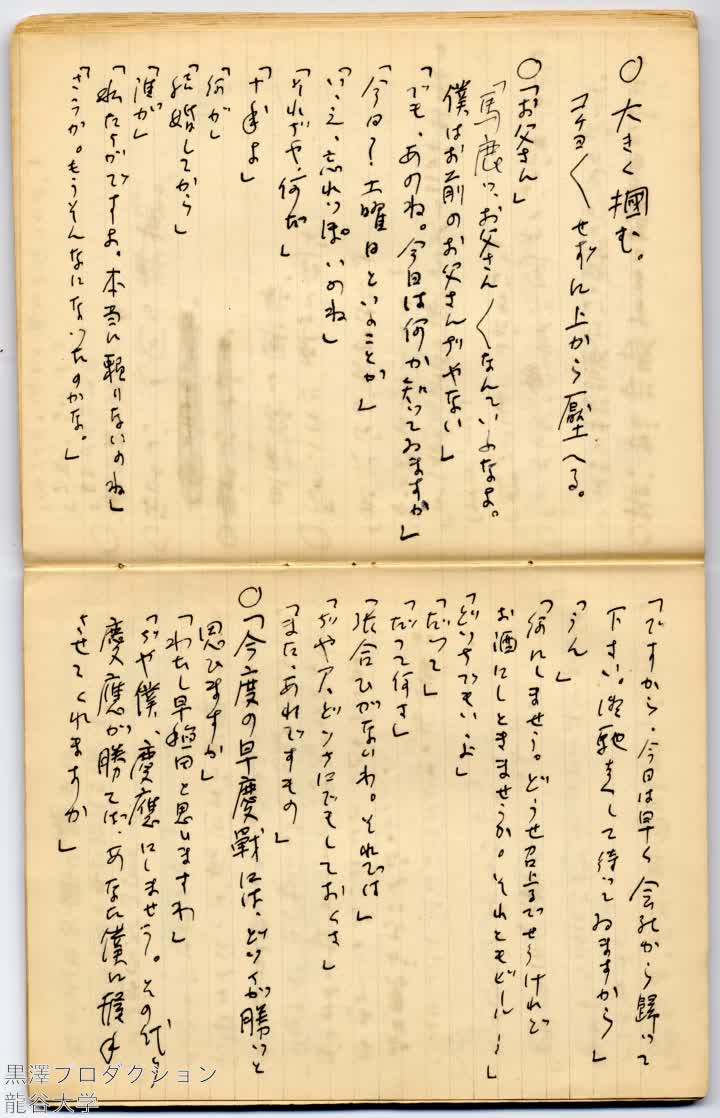 ○ 大きく掴む。
コチョ〳〵せずに上から壓へる。
○「お父さん」
「馬鹿ッ、お父さん〳〵なんていふなよ。
僕はお前のお父さんぢやない」
「でも、あのね。今日は何か知つてゐますか」
「今日？土曜日といふことか」
「いゝえ、忘れつぽいのね」
「それぢや、何だ」
「十年よ」
「何が」
「結婚してから」
「誰が」
「わたくしがですよ。本当に頼りないのね」
「さうか。もうそんなになつたのかな。」
「ですから、今日は早く会社から歸つて
下さい。御馳走して待つてゐますから」
「うん」
「何にしませう。どうせ召上るでせうけれど
お酒にしときませうか。それともビール―」
「どつちでもいゝよ」
「だつて」
「だつて何さ」
「張合ひがないわ。それでは」
「ぢやア、どんなにでもしておくさ」
「また、あれですもの」
○「今度の早慶戰には、どつちが勝つと
思ひますか」
「わたし早稲田と思ひますわ」
「ぢや僕、慶應にしませう。その代り
慶應が勝てば、あなた僕に握手
させてくれますか」
黒澤プロダクション
龍谷大学